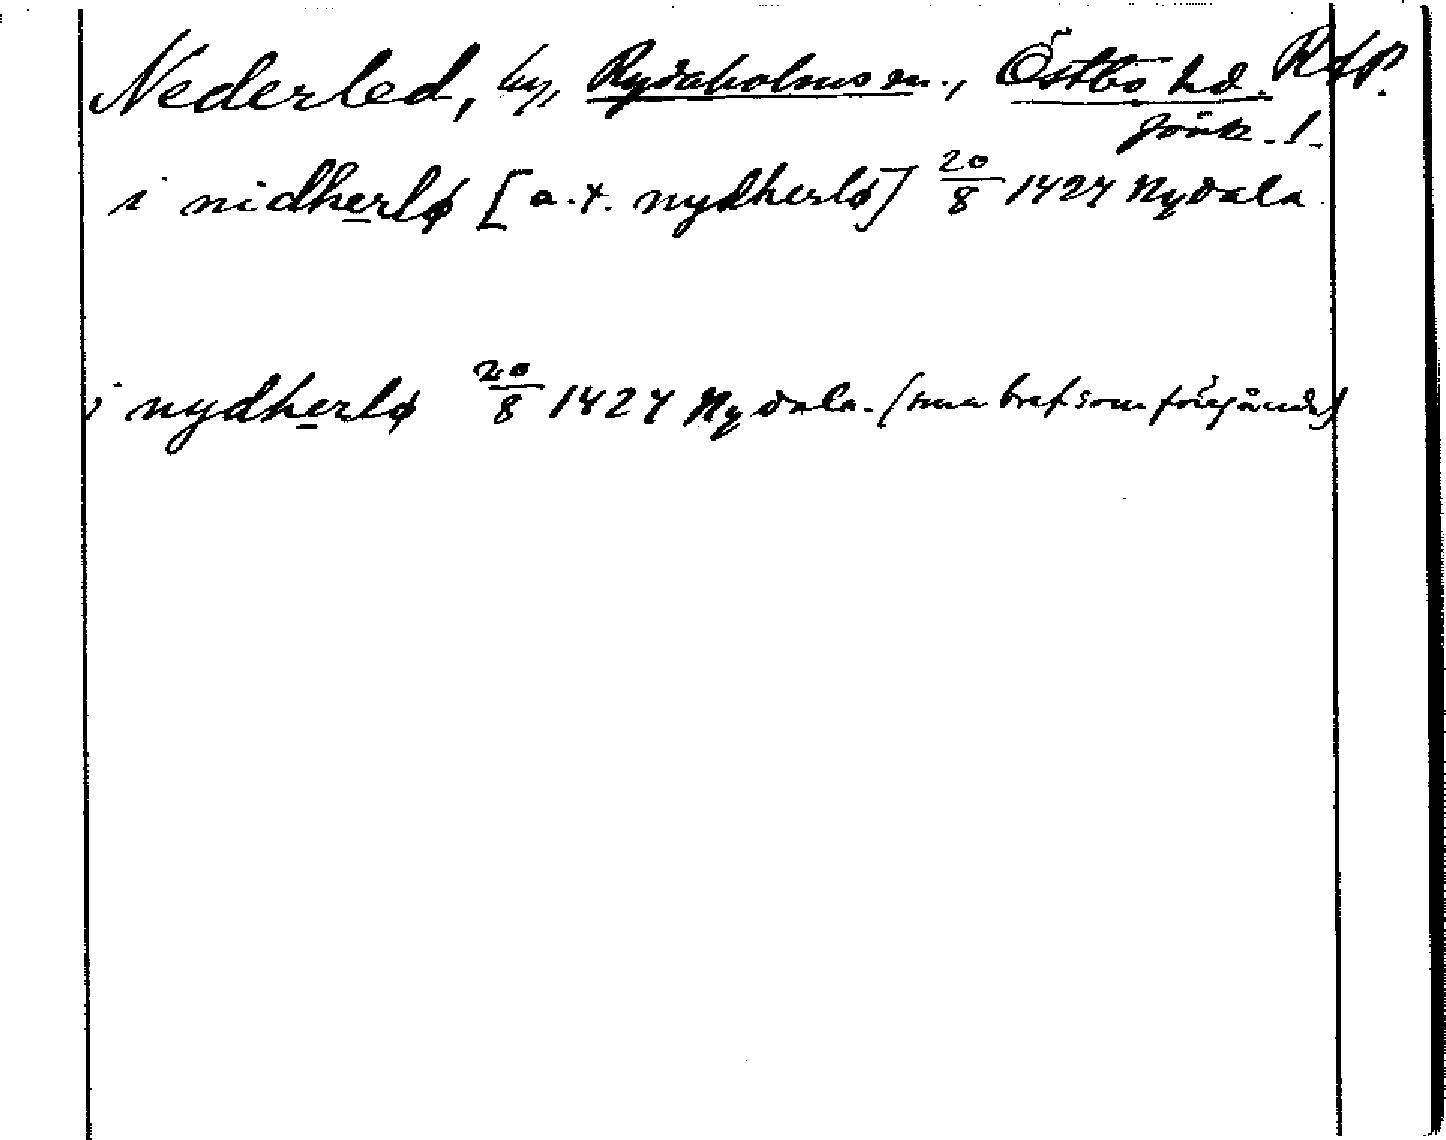 Nederled, by, Rydaholms sn., Östbo hd. RAP.
Jönk. l.
i nidherlø [a.t. nydherlø] 20/8 1424 Nydala
i nydherlø 20/8 1424 Nydala. (sma bref som föregående)